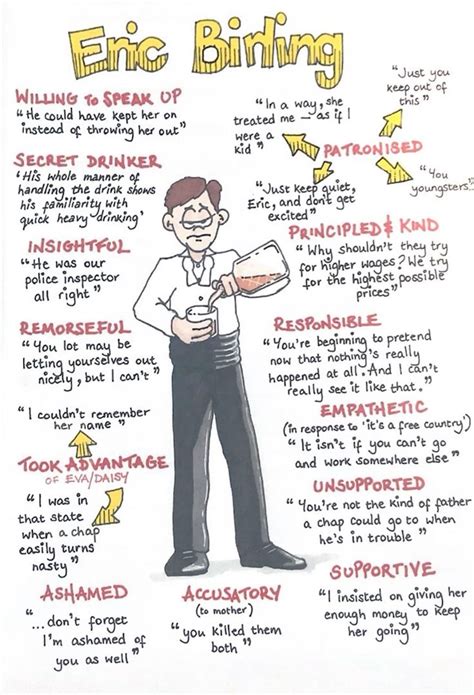 Eric Birling
WILLING to SPEAK UP
"He could have kept her on
instead of throwing her out"
SECRET DRINKER
'His whole manner of
handling the drink shows
his familiarity with
quick heavy drinking'
INSIGHTFUL
"He was our
police inspector
all right"
REMORSEFUL
"You lot may be
letting yourselves out
nicely, but I can't"
"I couldn't remember
her name"
TOOK ADVANTAGE
OF EVA/DAISY
"I was in
that state
when a chap
easily turns
nasty"
ASHAMED
"...don't forget
I'm ashamed of
you as well"
"In a way, she
treated me – as if I
were a
kid"
"Just you
keep out of
this"
PATRONISED
"Just keep quiet,
Eric, and don't get
excited"
"You
youngsters"
PRINCIPLED & KIND
"Why shouldn't they try
for higher wages? We try
for the highest possible
prices"
RESPONSIBLE
"You're beginning to pretend
now that nothing's really
happened at all. And I can't
really see it like that."
EMPATHETIC
(in response to 'it's a free country')
"It isn't if you can't go
and work somewhere else"
UNSUPPORTED
"You're not the kind of father
a chap could go to when
he's in trouble"
SUPPORTIVE
"I insisted on giving her
enough money to keep
her going"
ACCUSATORY
(to mother)
"you killed them
both"